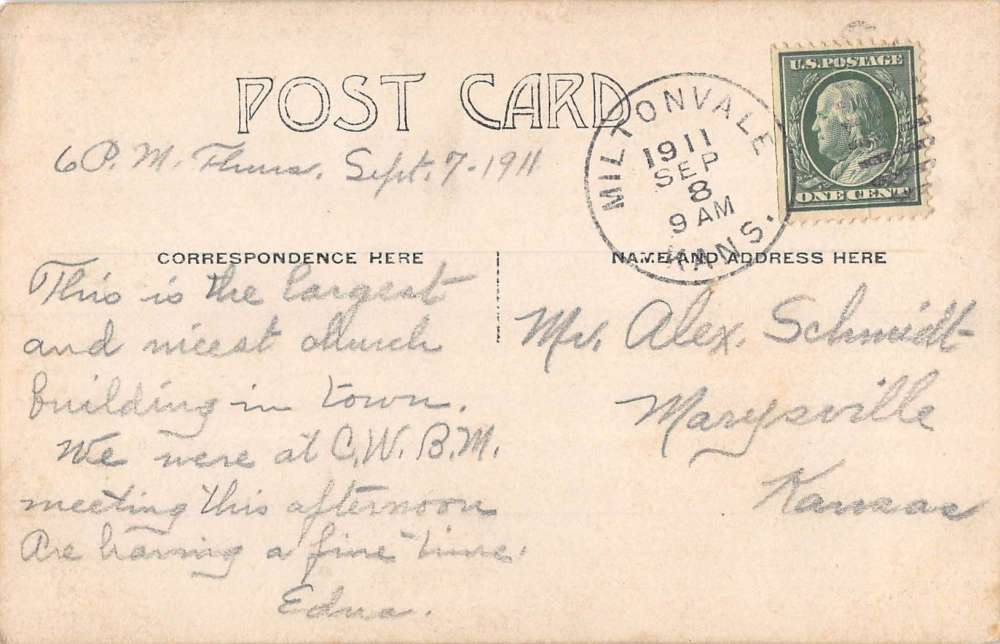 POST CARD
6 P. M. Thurs. Sept. 7 - 1911
MILTONVALE
1911
SEP
8
9 AM
KANS.
U.S. POSTAGE
ONE CENT
CORRESPONDENCE HERE
NAME AND ADDRESS HERE
This is the largest
and nicest church
building in town.
We were at C. W. B. M.
meeting this afternoon
Are having a fine time.
Edna.
Mr. Alex. Schmidt
Marysville
Kansas